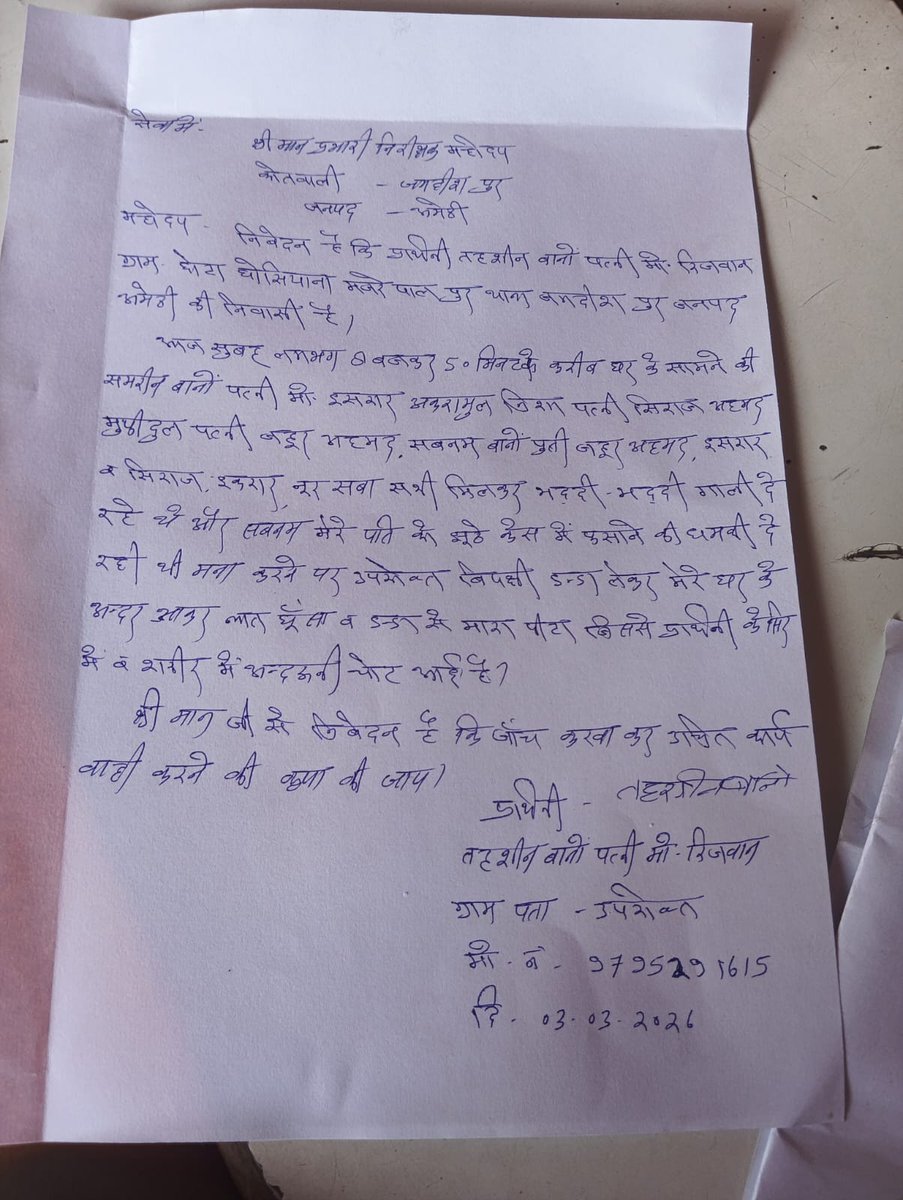 सेवामें.
श्री मान प्रभारी निरीक्षक महोदय
कोतवाली - जगदीश पुर
जनपद - अमेठी
महोदय -
निवेदन है कि प्रार्थिनी तहशीन वानों पत्नी मो. रिजवान
ग्राम घोसियाना मजरे पालपुर थाना जगदीश पुर जनपद
अमेठी की निवासी है।
आज सुबह लगभग 8 बजकर 50 मिनटके करीब घर के सामने की
समरीन वानों पत्नी मो. इसरार अकरामुन निशा पत्नी सिराज अहमद
पत्नी जहूर अहमद, सबनम वानों पुत्री जहूर अहमद, इसरार
व सिराज, इकरार, नूर सवा सभी मिलकर भद्दी-भद्दी गाली दे
रहे थे और सबनम मेरे पति को झूठे केस में फसाने की धमकी दे
रही थी मना करने पर उपरोक्त विपक्षी डन्डा लेकर मेरे घर के
अन्दर आकर लात घूँसा व डन्डा से मारा पीटा जिससे प्रार्थिनी के सिर
में व शरीर में अन्दरूनी चोट आई है।
श्री मान जी से निवेदन है कि जाँच करवा कर उचित कार्य
वाही करने की कृपा की जाय।
प्रार्थिनी - तहशीन वानो
तहशीन वानों पत्नी मो - रिजवान
ग्राम पता - उपरोक्त
मो - नं - 9795291615
दि - 03-03-2026